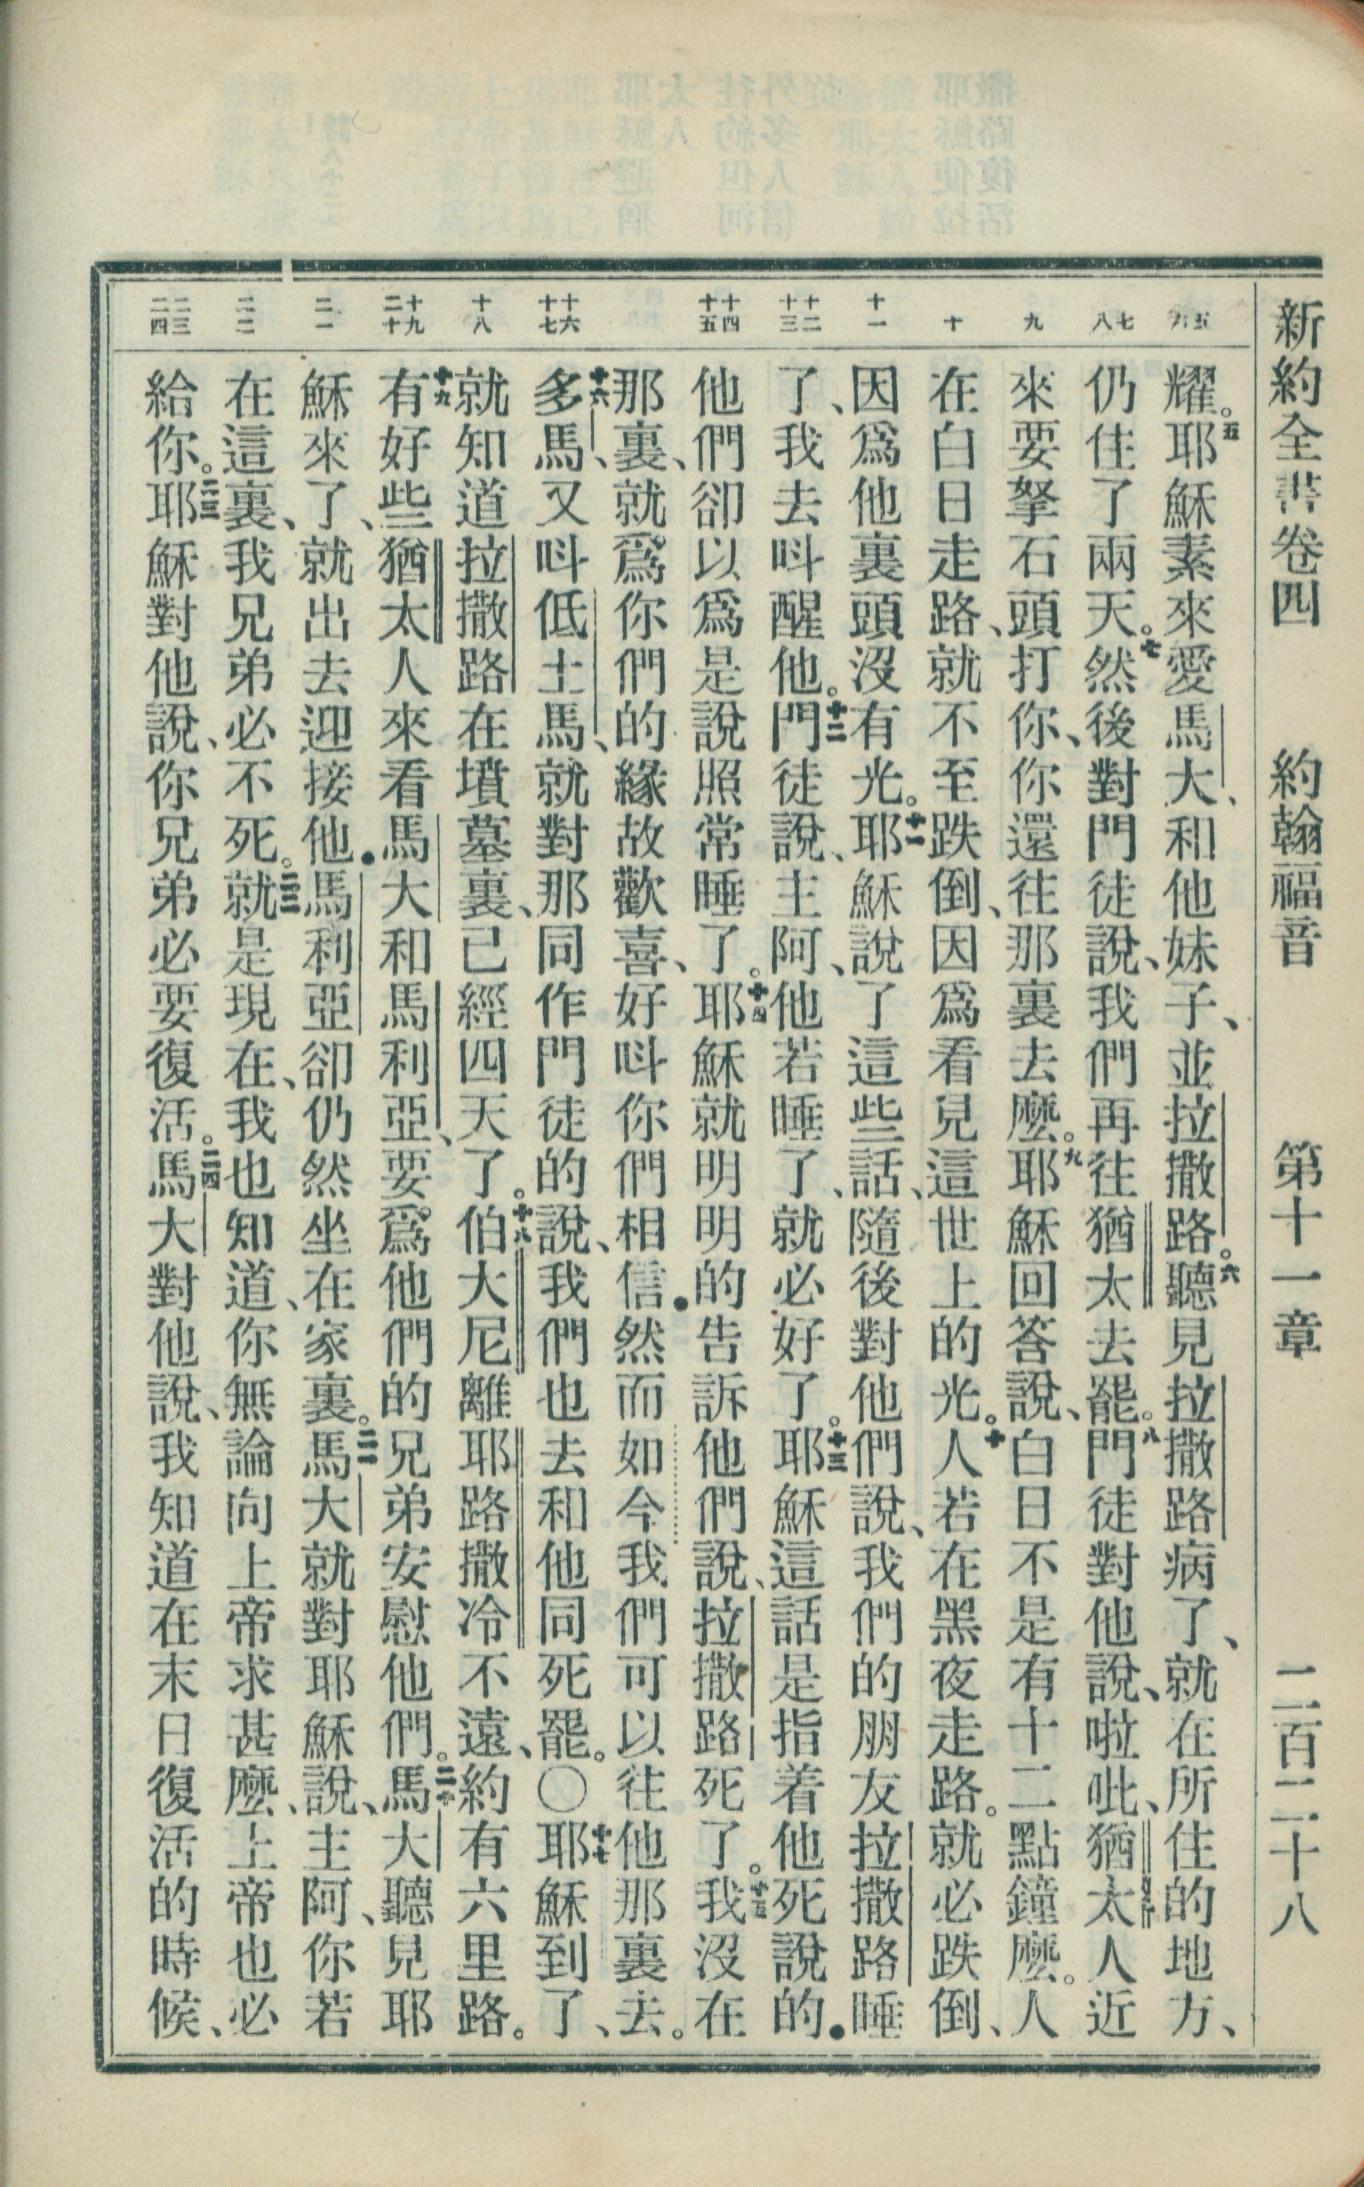 新約全書卷四 約翰福音 第十一章 二百二十八
五 六
七 八
九
十
十一
十二 十三
十四 十五
十六 十七
十八
十九 二十
二一
二二
二三 二四
耀。五耶穌素來愛馬大、和他妹子、並拉撒路。六聽見拉撒路病了、就在所住的地方、
仍住了兩天。七然後對門徒說、我們再往猶太去罷。八門徒對他說、啦吡、猶太人近
來要拏石頭打你、你還往那裏去麼。九耶穌回答說、白日不是有十二點鐘麼。人
在白日走路、就不至跌倒、因爲看見這世上的光。十人若在黑夜走路。就必跌倒、
因爲他裏頭沒有光。十一耶穌說了這些話、隨後對他們說、我們的朋友拉撒路睡
了、我去呌醒他。十二門徒說、主阿、他若睡了、就必好了。十三耶穌這話是指着他死說的．
他們卻以爲是說照常睡了。十四耶穌就明明的告訴他們說、拉撒路死了。十五我沒在
那裏、就爲你們的緣故歡喜、好呌你們相信．然而如今我們可以往他那裏去。
十六多馬、又呌低土馬、就對那同作門徒的說、我們也去和他同死罷。〇十七耶穌到了、
就知道拉撒路在墳墓裏、已經四天了。十八伯大尼離耶路撒冷不遠、約有六里路。
十九有好些猶太人來看馬大和馬利亞、要爲他們的兄弟安慰他們。二十馬大聽見耶
穌來了、就出去迎接他．馬利亞卻仍然坐在家裏。二一馬大就對耶穌說、主阿、你若
在這裏、我兄弟必不死。二二就是現在、我也知道、你無論向上帝求甚麼、上帝也必
給你。二三耶穌對他說、你兄弟必要復活。二四馬大對他說、我知道在末日復活的時候、